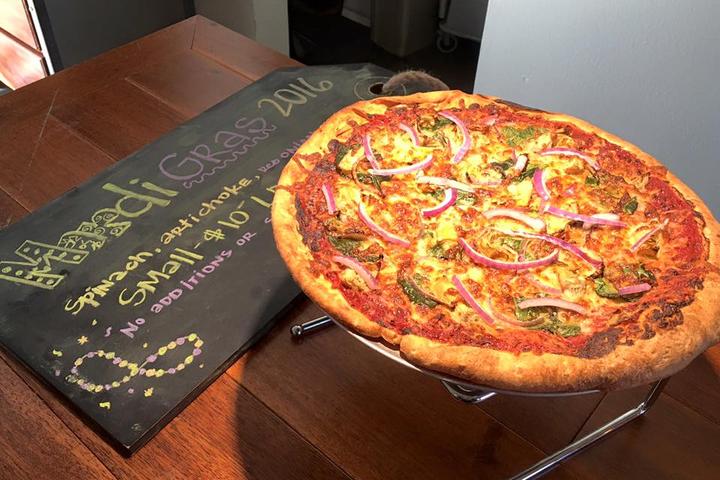 Mardi Gras 2016
Spinach, artichoke, red oni
Small - $10 - L
No additions or s